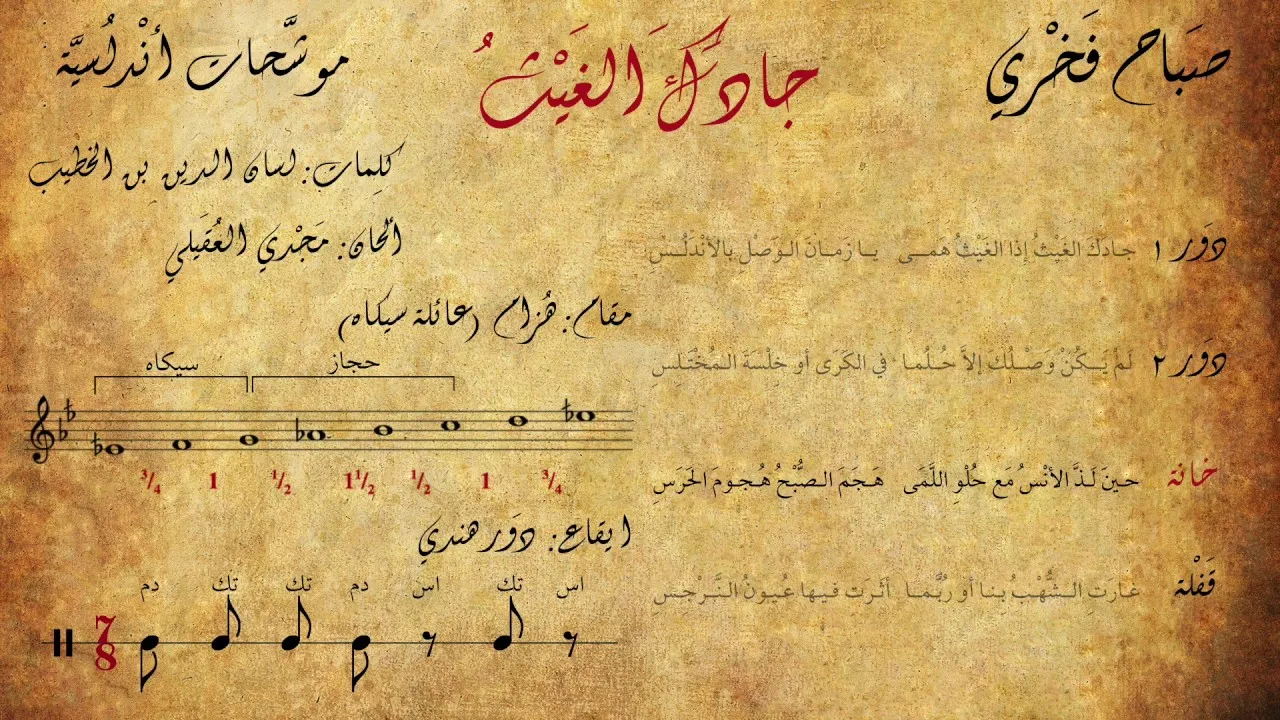 صَبَاح فَخْرِي
جادَكَ الغَيْثُ
موشَّحات أنْدلُسيَّة
كلِمات: لسان الدين بن الخطيب
ألحان: مَجْدي العُقَيلي
مقام: هُزام (عائلة سيكاه)
حجاز
سيكاه
3/4 1 1/2 1 1/2 1/2 1 3/4
ايقاع: دَور هندي
دم تك تك دم اس تك اس
7
8
دَور ١ جادَكَ الغَيْثُ إذا الغَيْثُ هَمى يا زَمانَ الوَصْلِ بالأنْدَلُسِ
دَور ٢ لَمْ يَكُنْ وَصْلُكَ إلاَّ حُلُما في الكَرَى أو خِلْسَةَ المُخْتَلِسِ
خانة حينَ لَذَّ الأنْسُ مَع حُلْوِ اللَّمَى هَجَمَ الصُّبْحُ هُجومَ الحَرَسِ
قَفْلة غارَتِ الشُّهْبُ بِنا أو رُبَّما أثرَت فيها عُيونُ النَّرْجسِ